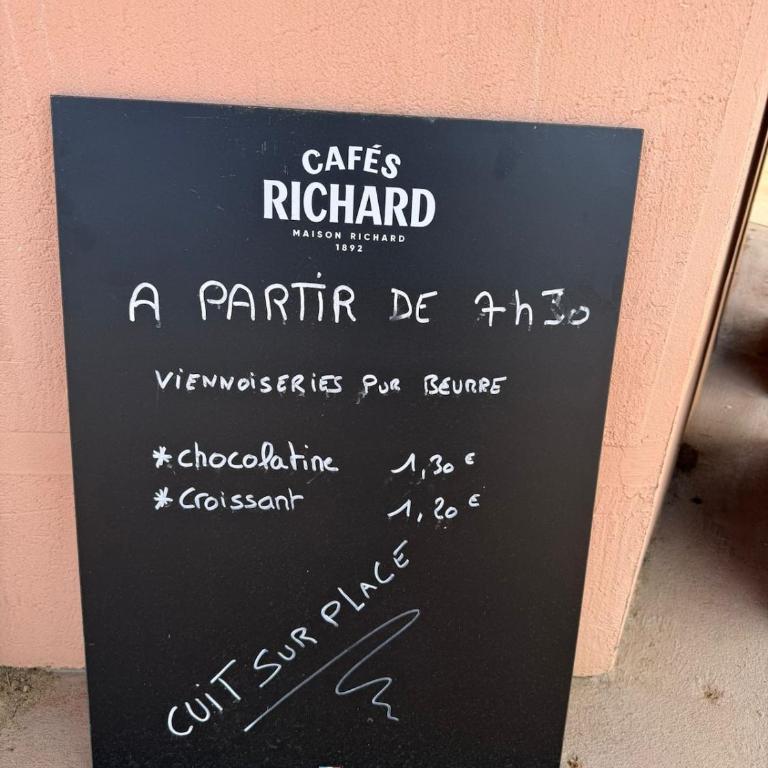 CAFÉS
RICHARD
MAISON RICHARD
1892
A PARTIR DE 7h30
VIENNOISERIES PUR BEURRE
*chocolatine 1,30 €
*Croissant 1,20 €
CUIT SUR PLACE